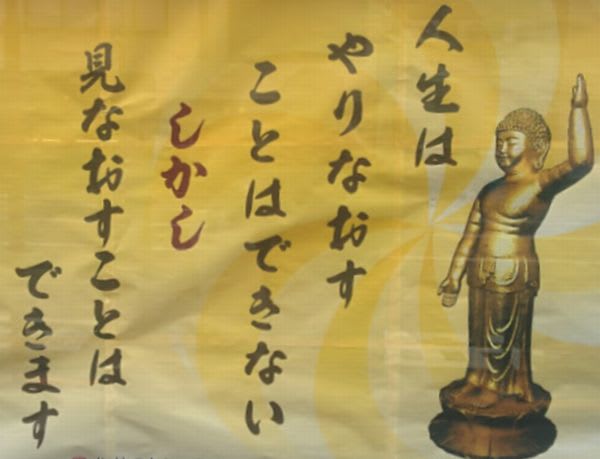 人生は
やりなおす
ことはできない
しかし
見なおすことは
できます